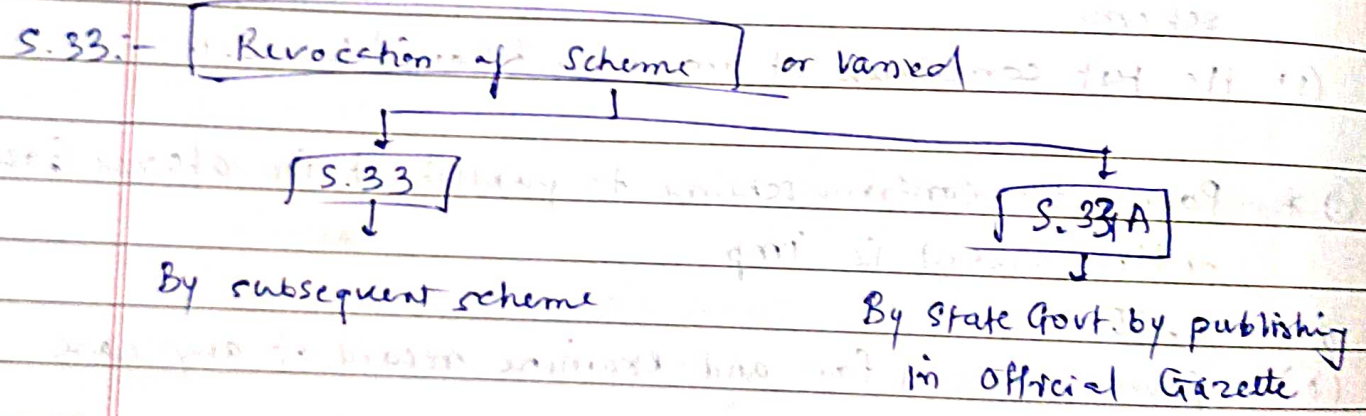 S. 33.:- Revocation of Scheme or varied
S. 33
S. 33A
By subsequent scheme
By State Govt. by publishing
in Official Gazette